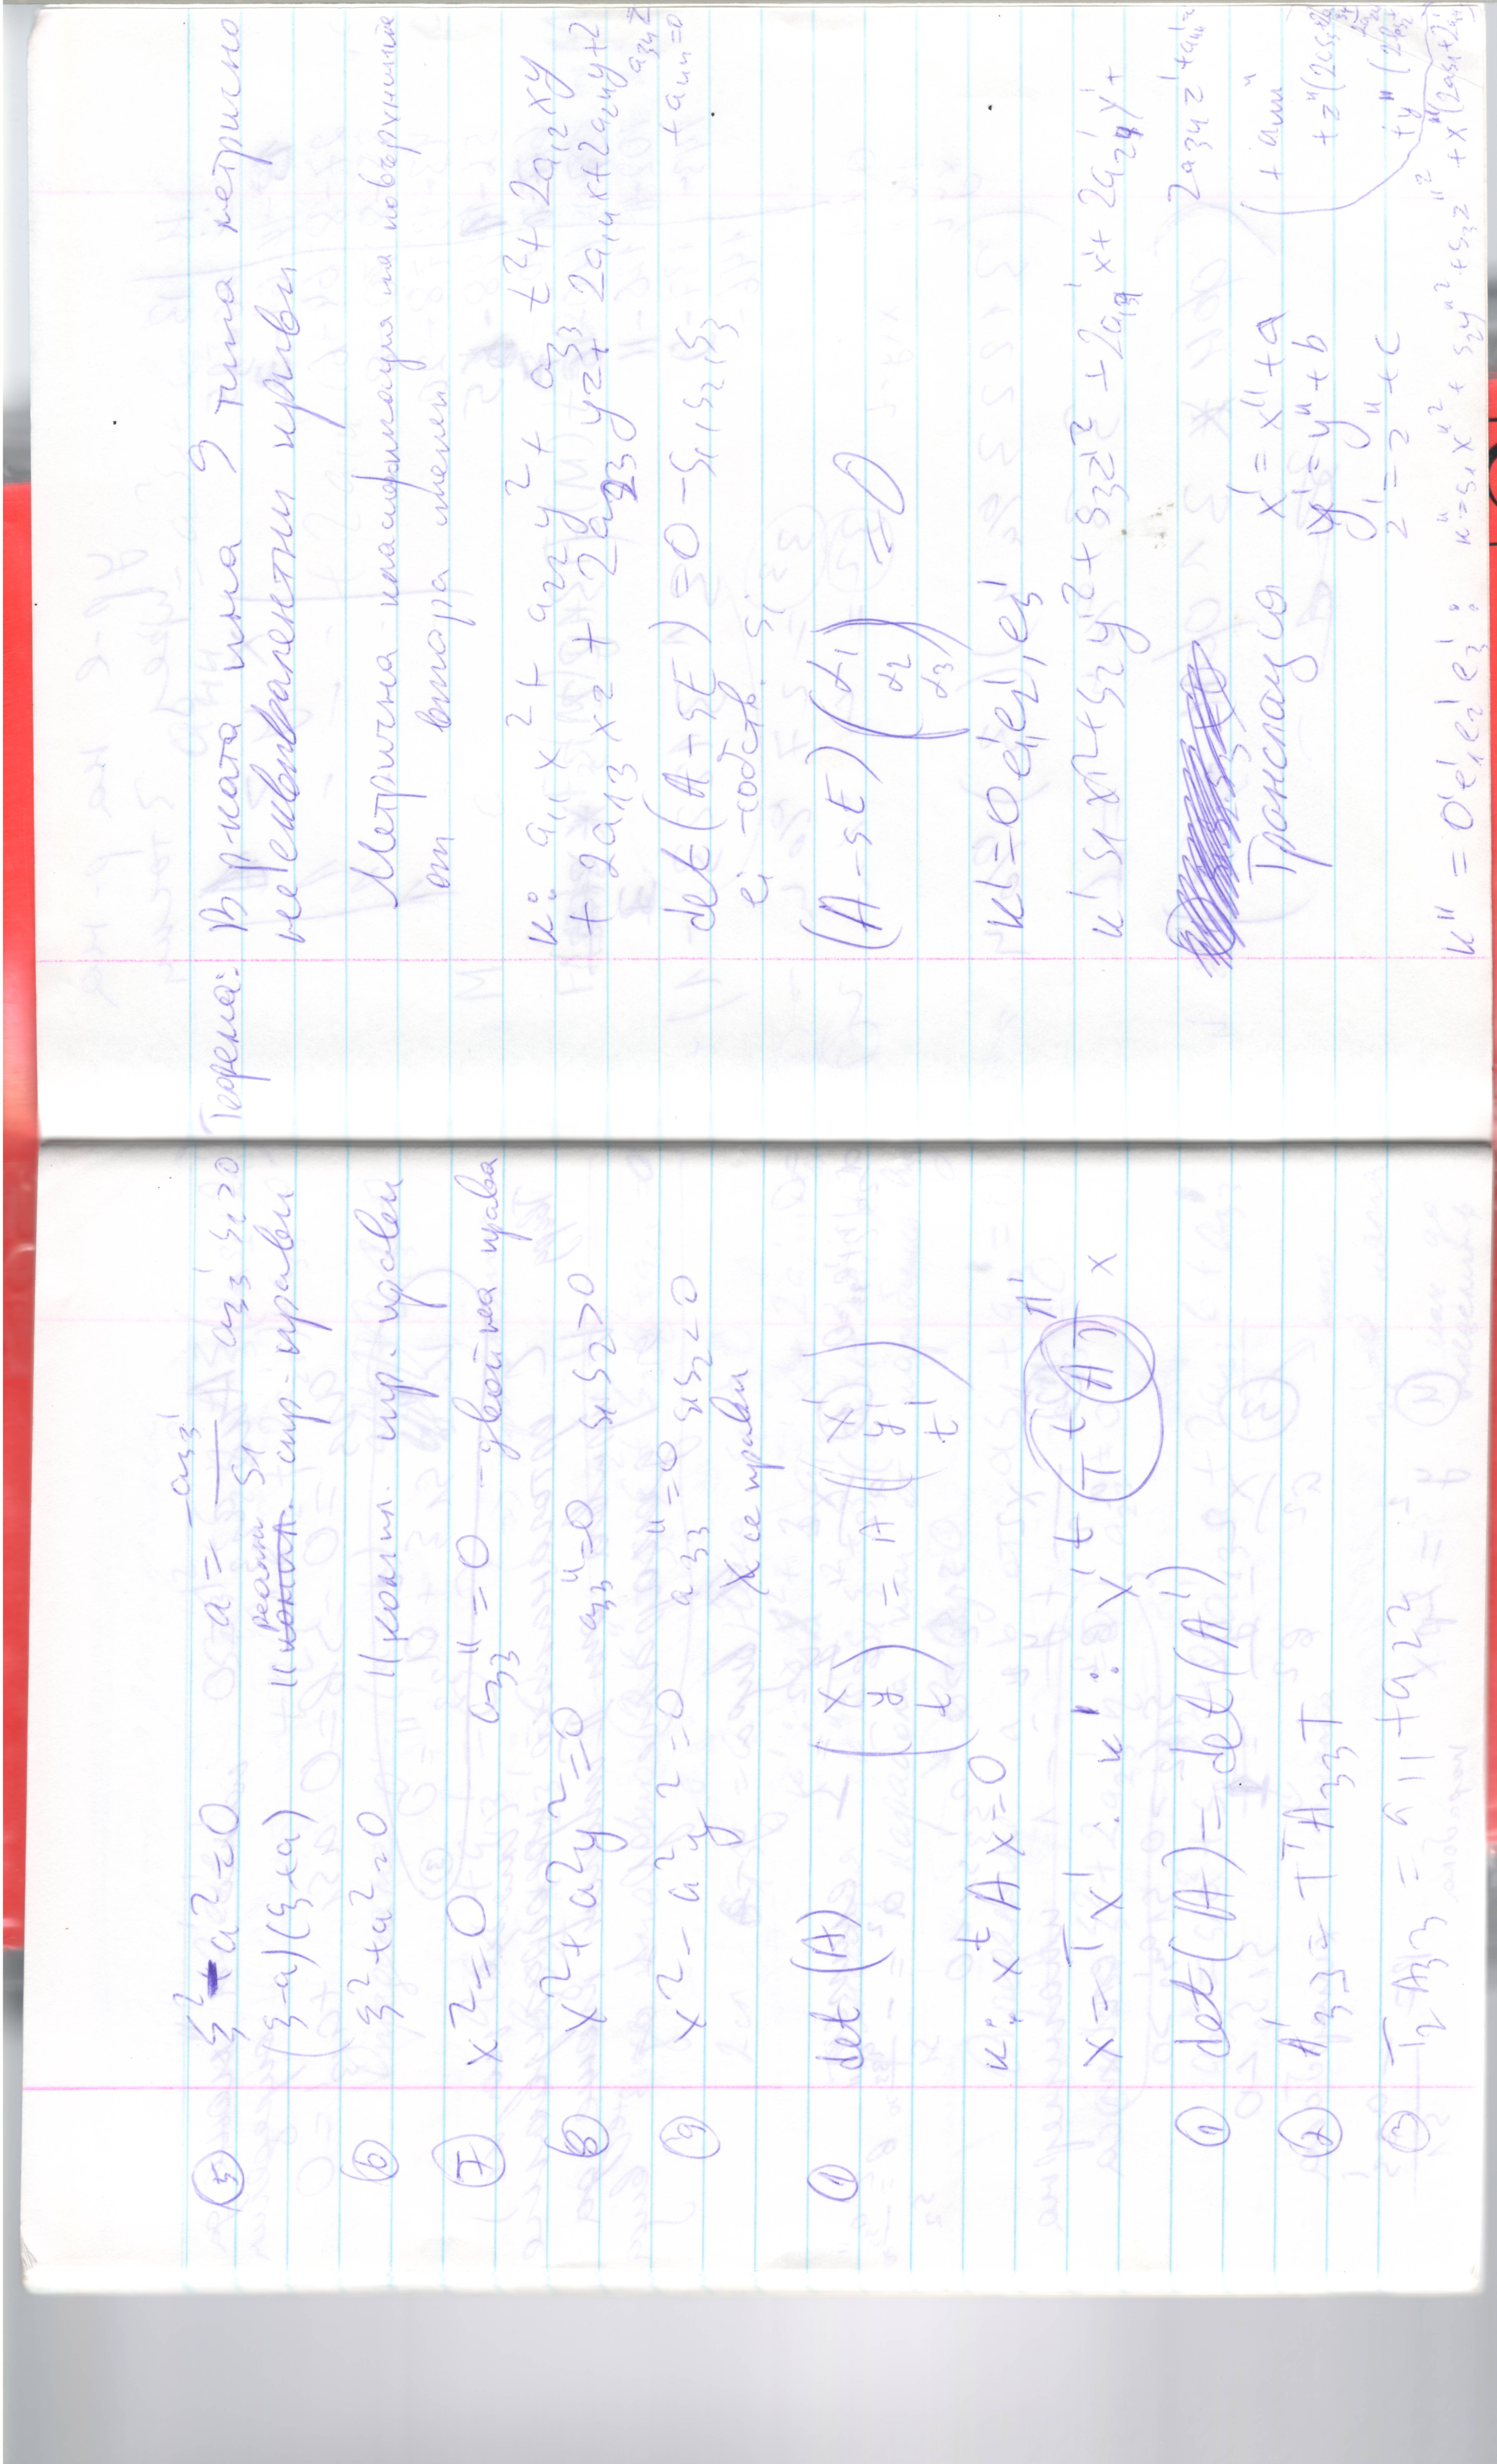 ⑤ ξ² - a² = 0 a² = -a₃₃' / s₁ a₃₃' s₁ < 0
(ξ-a)(ξ+a) || реални пр. прави
⑥ ξ² + a² = 0 || компл. пр. прави
⑦ x² = 0 a₃₃'' = 0 - двойна права
⑧ x² + a²y² = 0 a₃₃'' = 0 s₁s₂ > 0
⑨ x² - a²y² = 0 a₃₃'' = 0 s₁s₂ < 0
X се прави
① det(A) (x y t) = A (x' y' t')
к: xᵗ A x = 0
x = T x' к': x'ᵗ Tᵗ A T x' A'
① det(A) = det(A')
② A'₃₃ = T' A₃₃ T
③ Tr A₃₃ = a₁₁ + a₂₂
Теорема: В р-ката има 9 типа метрично
не еквивалентни криви
Метрична класификация на повърхнините
от втора степен
к: a₁₁x² + a₂₂y² + a₃₃z² + 2a₁₂xy
+ 2a₁₃xz + 2a₂₃yz + 2a₁₄x + 2a₂₄y + 2a₃₄z + a₄₄ = 0
det(A - sE) = 0 - s₁, s₂, s₃
eᵢ - собств. sᵢ
(A - sE) (α₁ α₂ α₃) = 0
К' = 0 e₁', e₂', e₃'
к' s₁x'² + s₂y'² + s₃z'² + 2a₁₄'x' + 2a₂₄'y' +
2a₃₄'z' + a₄₄' =
Транслация x' = x'' + a
y' = y'' + b
z' = z'' + c
К'' = 0'e₁'e₂'e₃' : к'' = s₁x''² + s₂y''² + s₃z''² + x''(2as₁ + 2a₁₄')
+ y''(2bs₂
+ z''(2cs₃
+ a₄₄''